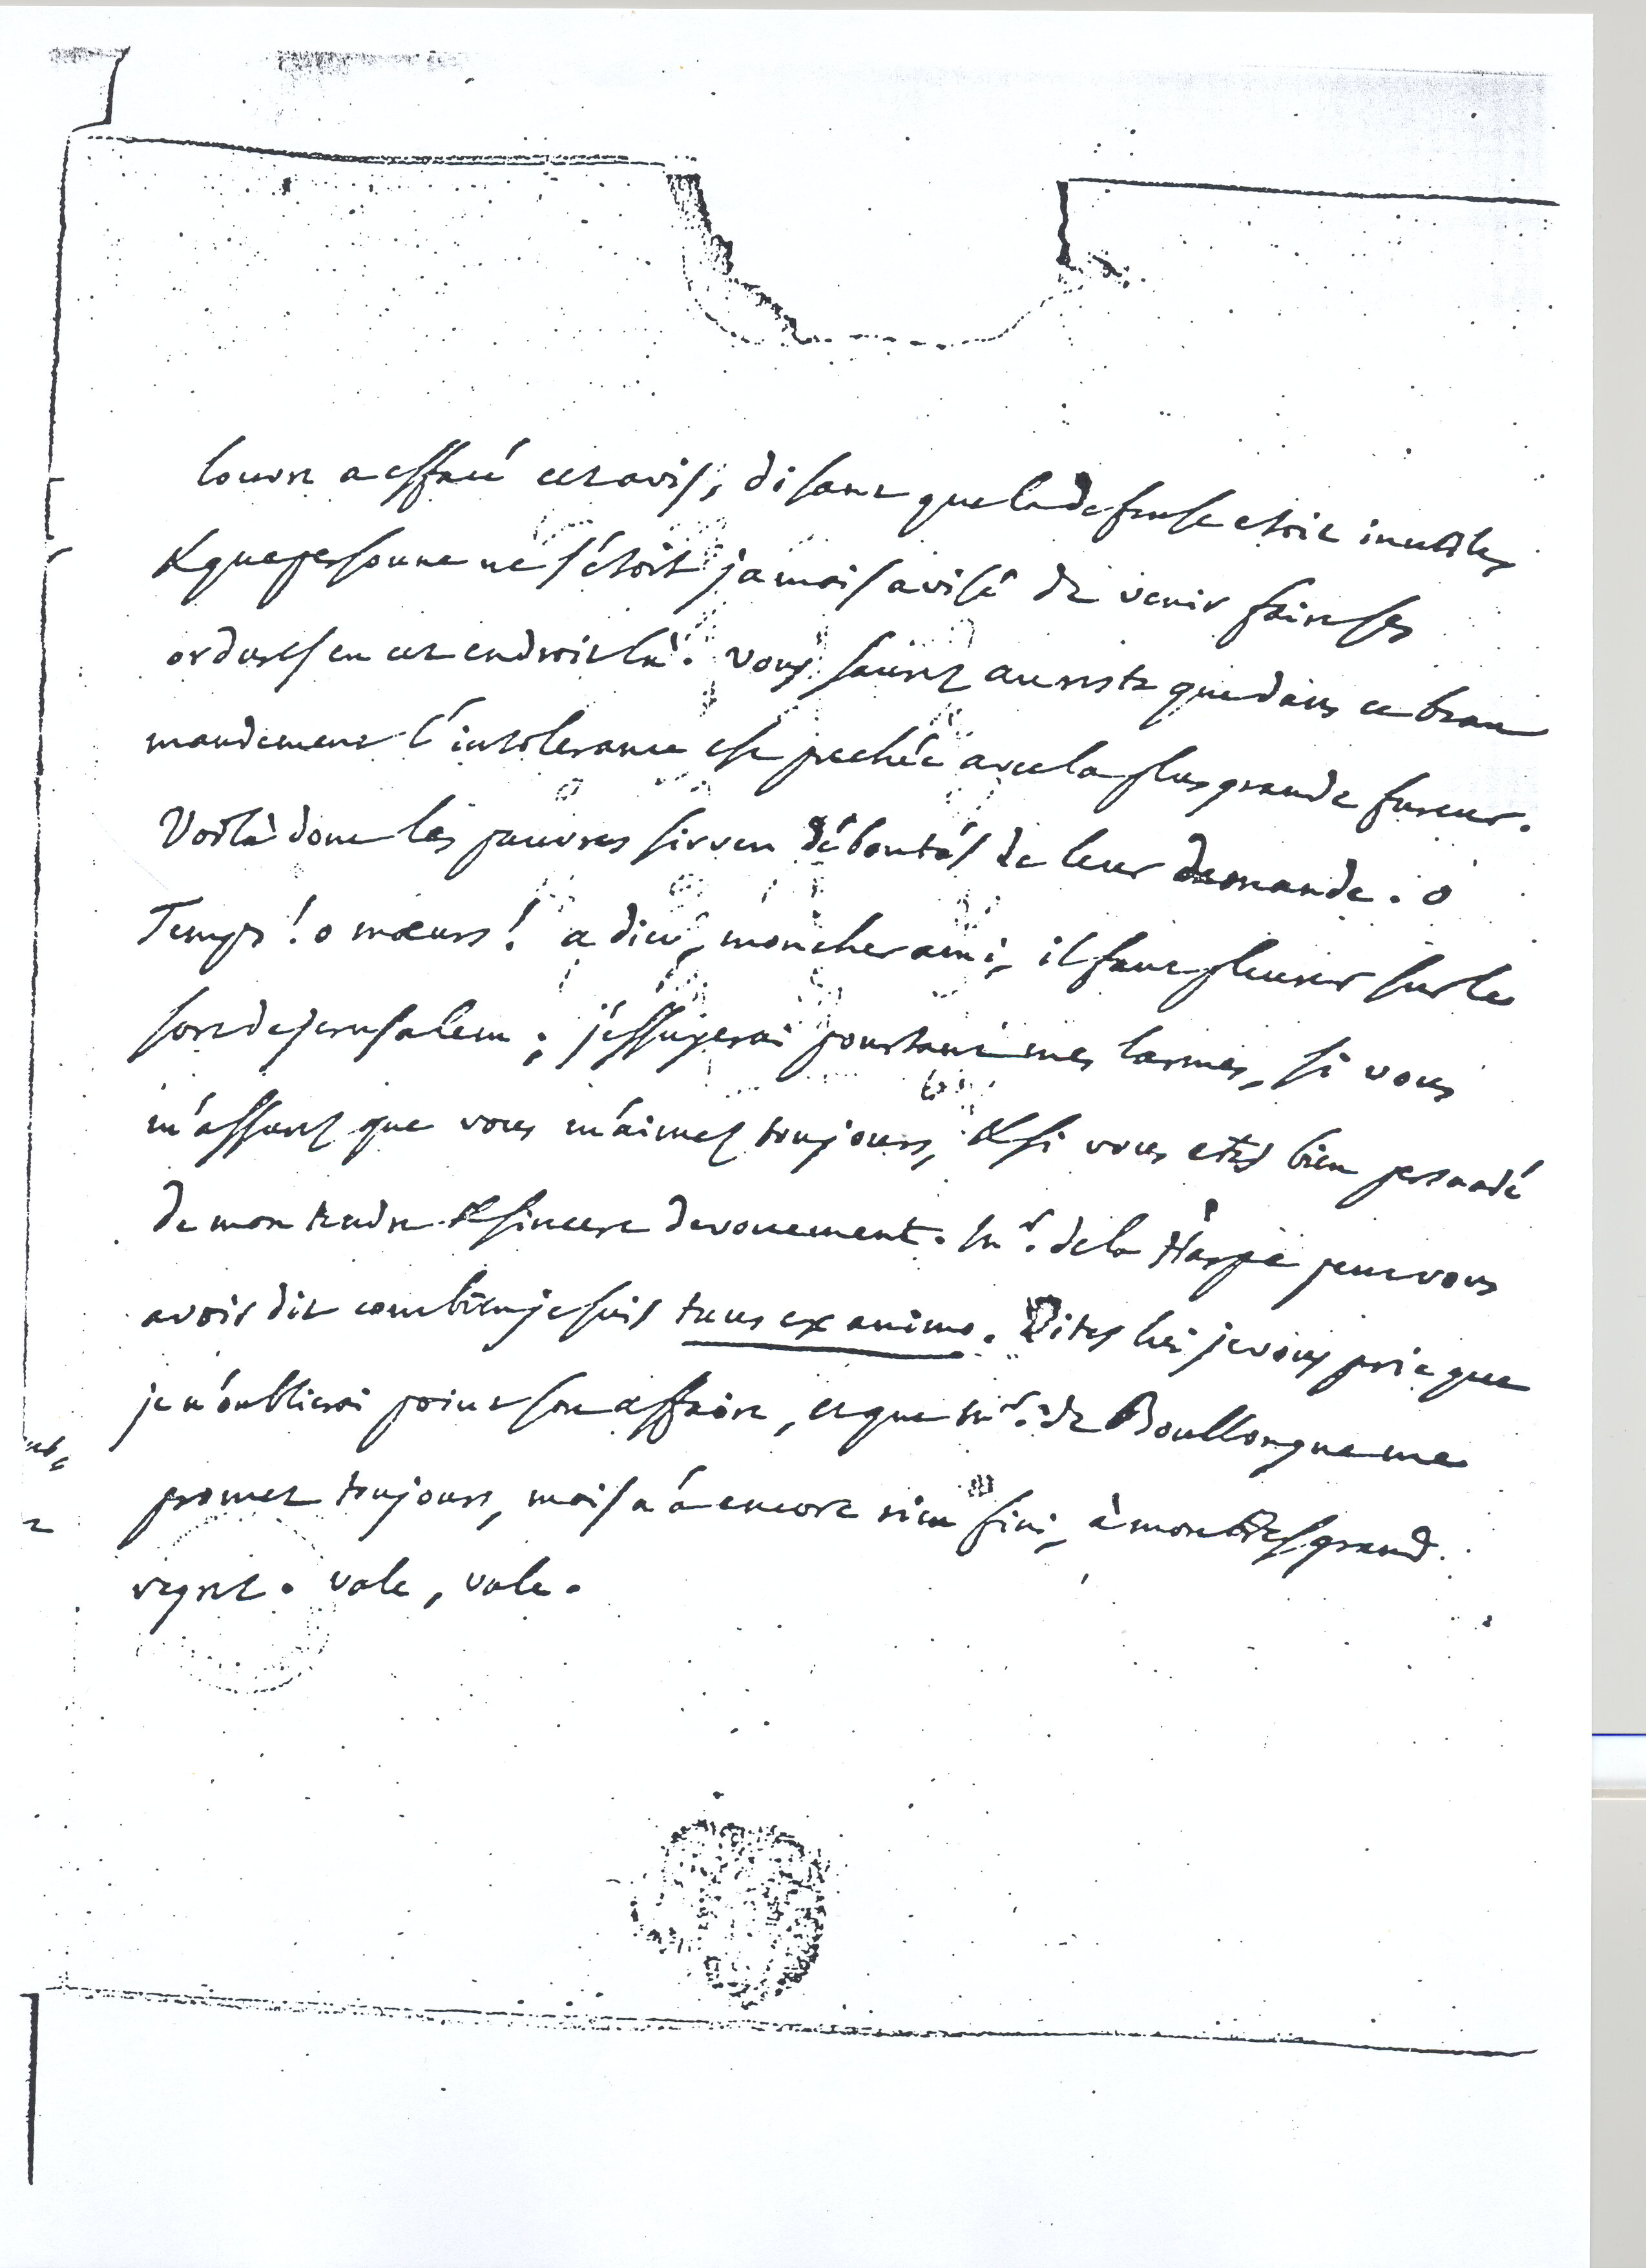 louvre a effacé cet avis, disant que la defense etoit inutile,
& que personne ne s'étoit jamais avisé de venir faire ses
ordures en cet endroit là. vous saurez au reste que dans ce beau
mandement l'intolerance est prechée avec la plus grande fureur.
Voilà donc les pauvres sirven déboutés de leur demande. ô
Temps! o mœurs! adieu, mon cher ami, il faut pleurer sur le
sort de jerusalem; j'essuyerai pourtant mes larmes, si vous
m'assurez que vous m'aimez toujours, & si vous etes bien persuadé
de mon tendre & sincere devouement. Mr. de la Harpe peut vous
avoir dit combien je suis tuus ex animo. Dites lui je vous prie que
je n'oublierai point son affaire, et que Mr. de Boullongne me
promet toujours, mais n'a encore rien fini, à mon très grand
regret. vale, vale.